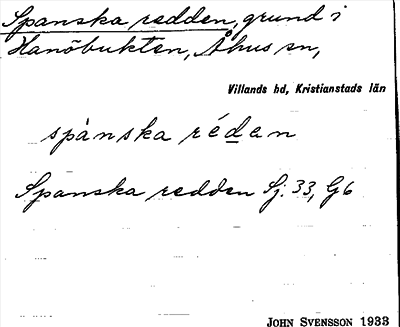 Spanska redden, grund i
Hanöbukten, Åhus sn,
Villands hd, Kristianstads län
spànska rédan
Spanska redden Sj. 33, G6
JOHN SVENSSON 1933